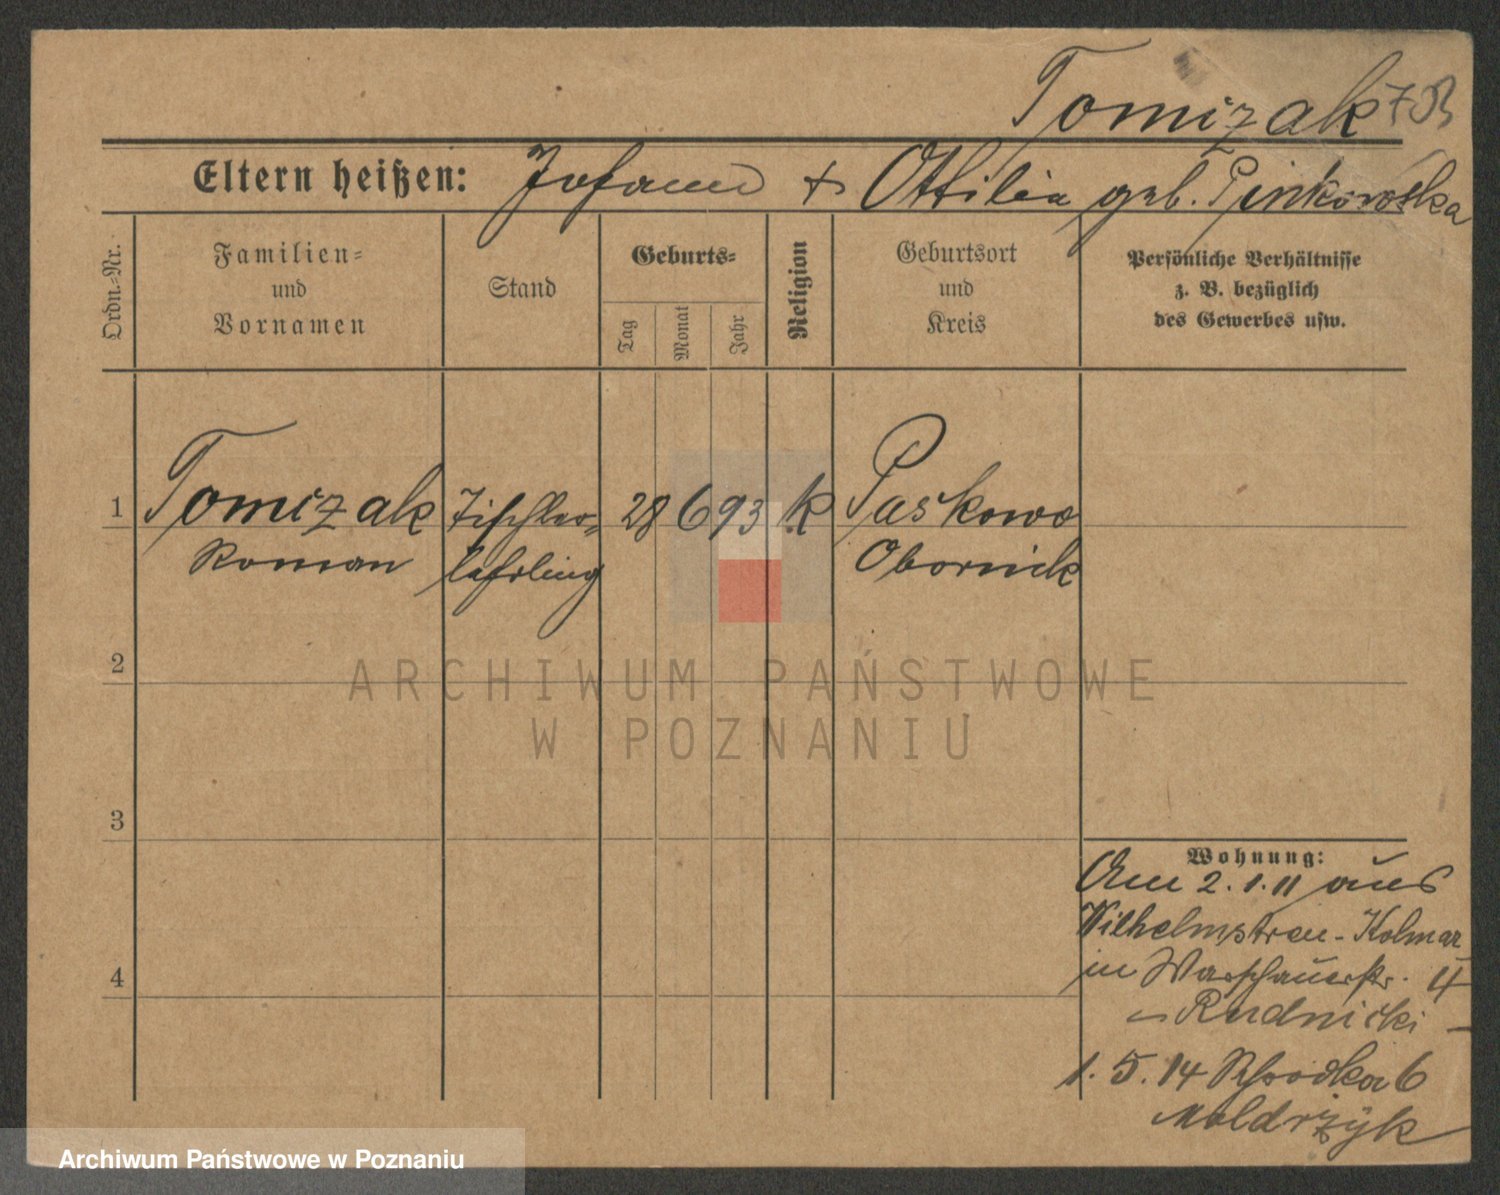 Tomizak
Eltern heißen: Johann + Ottilia geb. Pinkowska
Ordn.-Nr.
Familien-
und
Vornamen
Stand
Geburts-
Tag
Monat
Jahr
Religion
Geburtsort
und
Kreis
Persönliche Verhältnisse
z. B. bezüglich
des Gewerbes usw.
1 Tomizak Tischler- 28 6 93 k Paskowo
Roman lehrling Obornik
2
3
4
Wohnung:
Am 2.1.11 aus
Wilhelmstreu - Kolmar
in Warschauerstr. 4
Rudnicki -
1.5.14 Schrodka 6
Moldrzyk
ARCHIWUM PAŃSTWOWE
W POZNANIU
Archiwum Państwowe w Poznaniu